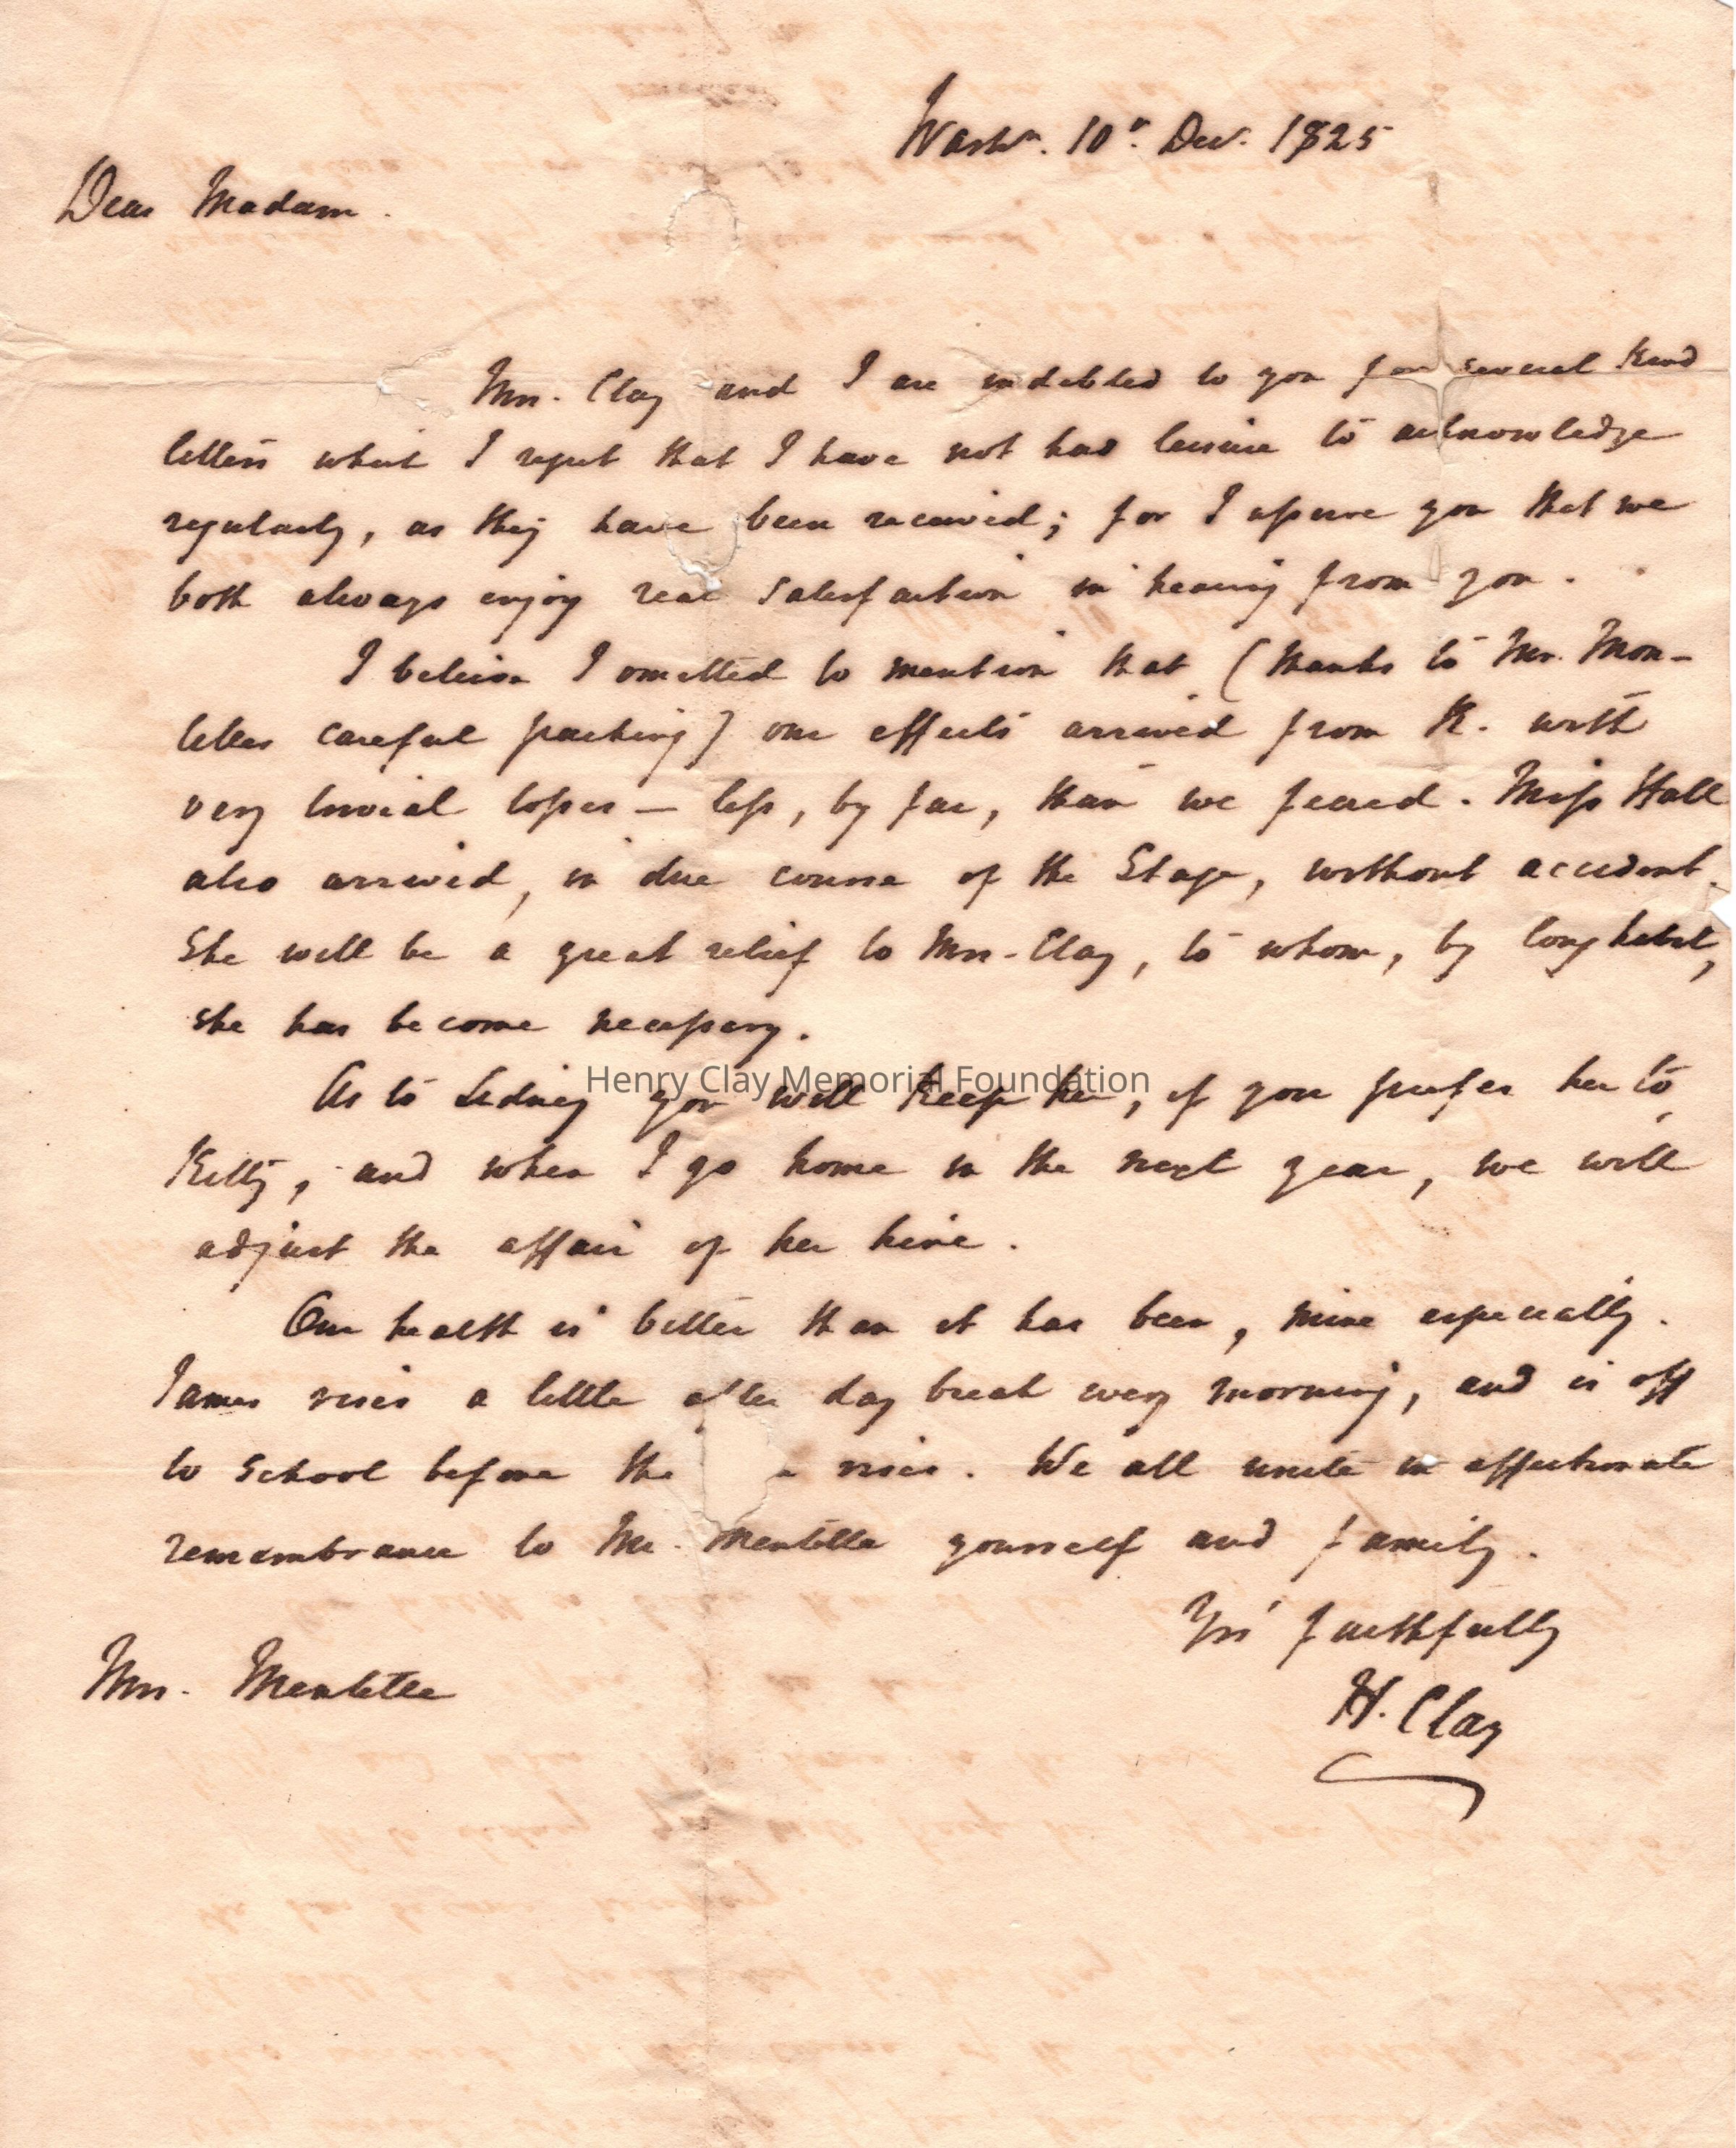 Washn. 10th. Dec. 1825
Dear Madam.
Mrs. Clay and I are indebted to you for several kind
letters which I regret that I have not had leisure to acknowledge
regularly, as they have been received; for I assure you that we
both always enjoy real satisfaction in hearing from you.
I believe I omitted to mention that (thanks to Mr. Men-
telles careful packing) our effects arrived from K. with
very trivial losses — less, by far, than we feared. Miss Hall
also arrived, in due course of the Stage, without accident.
She will be a great relief to Mrs. Clay, to whom, by long habit,
she has become necessary.
Henry Clay Memorial Foundation
As to Sidney you will keep her, if you prefer her to
Kitty, and when I go home in the next year, we will
adjust the affair of her hire.
Our health is better than it has been, mine especially.
James rises a little after day break every morning, and is off
to School before the rises. We all unite in affectionate
remembrance to Mr. Mentelle yourself and family.
Yrs faithfully
H. Clay
Mrs. Mentelle